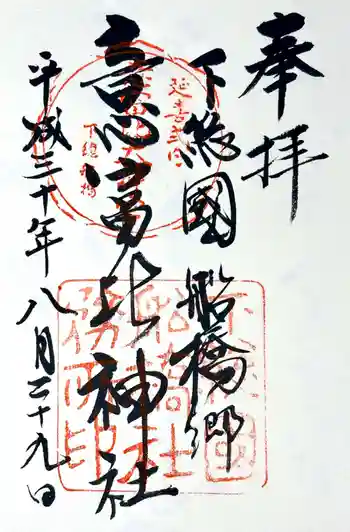 奉拝
下総國船橋郷
意富比神社
平成三十年八月二十九日
延喜式内
下総船橋